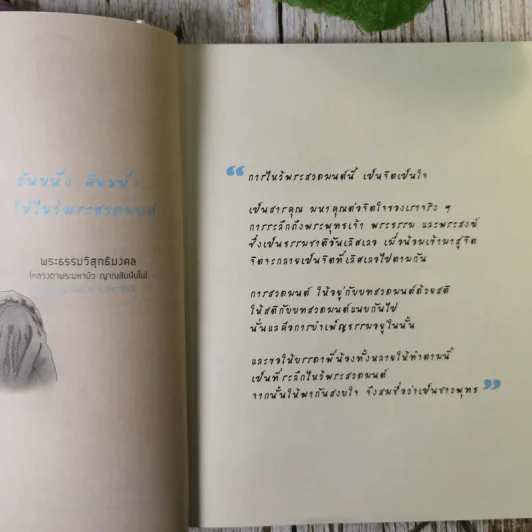 วันหนึ่ง คืนหนึ่ง
ให้ไหว้พระสวดมนต์
พระธรรมวิสุทธิมงคล
(หลวงตาพระมหาบัว ญาณสัมปันโน)
“ การไหว้พระสวดมนต์นี้ เป็นจิตเป็นใจ
เป็นสารคุณ มหาคุณต่อจิตใจของเราจริง ๆ
การระลึกถึงพระพุทธเจ้า พระธรรม และพระสงฆ์
ซึ่งเป็นธรรมชาติอันเลิศเลอ เมื่อน้อมเข้ามาสู่จิต
จิตจะกลายเป็นจิตที่เลิศเลอไปตามกัน
การสวดมนต์ ให้อยู่กับบทสวดมนต์ด้วยสติ
ให้สติกับบทสวดมนต์แนบกันไป
นั่นแลคือการบำเพ็ญธรรมอยู่ในนั้น
และขอให้บรรดาพี่น้องทั้งหลายให้ทำตามนี้
เป็นที่ระลึกไหว้พระสวดมนต์
จากนั้นให้พากันสงบใจ จึงสมชื่อว่าเป็นชาวพุทธ ”